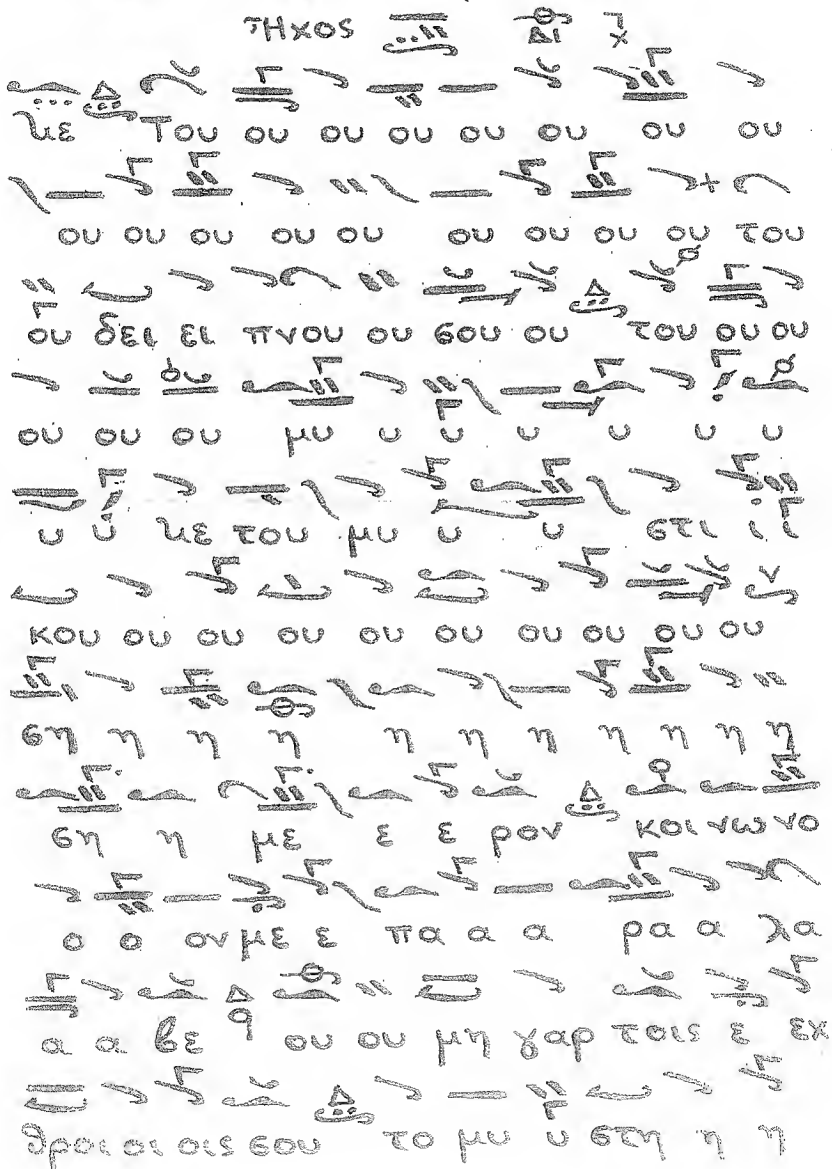 Ἦχος Δι χ
κε Του ου ου ου ου ου ου ου
ου ου ου ου ου ου ου ου ου του
ου δει ει πνου ου σου ου του ου ου
ου ου ου μυ υ υ υ υ υ υ
υ υ κε του μυ υ υ στι ι ι
κου ου ου ου ου ου ου ου ου ου
ση η η η η η η η η η η
ση η με ε ε ρον κοι νω νο
ο ο ον με ε πα α α ρα α λα
α α βε ου ου μη γαρ τοις ε εχ
θροι οι οις σου το μυ υ στη η η